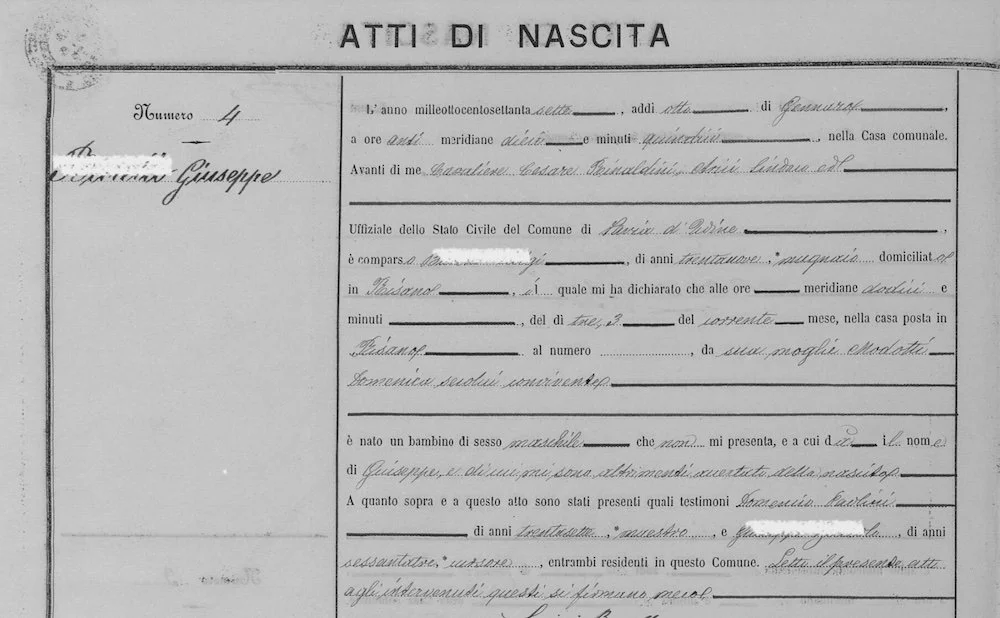 ATTI DI NASCITA
Numero 4
Giuseppe
L'anno milleottocentosettanta sette, addì otto di Gennaro,
a ore anti meridiane dieci e minuti quindici, nella Casa comunale.
Avanti di me Cavaliere Cesare Rinaldini, Sindaco ed
Uffiziale dello Stato Civile del Comune di Pavia d'Udine,
è comparso, di anni trentanove, mugnaio domiciliato
in Risano, il quale mi ha dichiarato che alle ore meridiane dodici e
minuti, del dì tre, 3 del corrente mese, nella casa posta in
Risano al numero, da sua moglie Modotti
Domenica seco lui convivente
è nato un bambino di sesso maschile che non mi presenta, e a cui dà il nome
di Giuseppe, e di cui mi sono altrimenti accertato della nascita
A quanto sopra e a questo atto sono stati presenti quali testimoni Domenico Paolini
di anni trentasette, maestro, e Giuseppe, di anni
sessantatre, cursore, entrambi residenti in questo Comune. Letto il presente atto
agli intervenuti questi si firmano meco